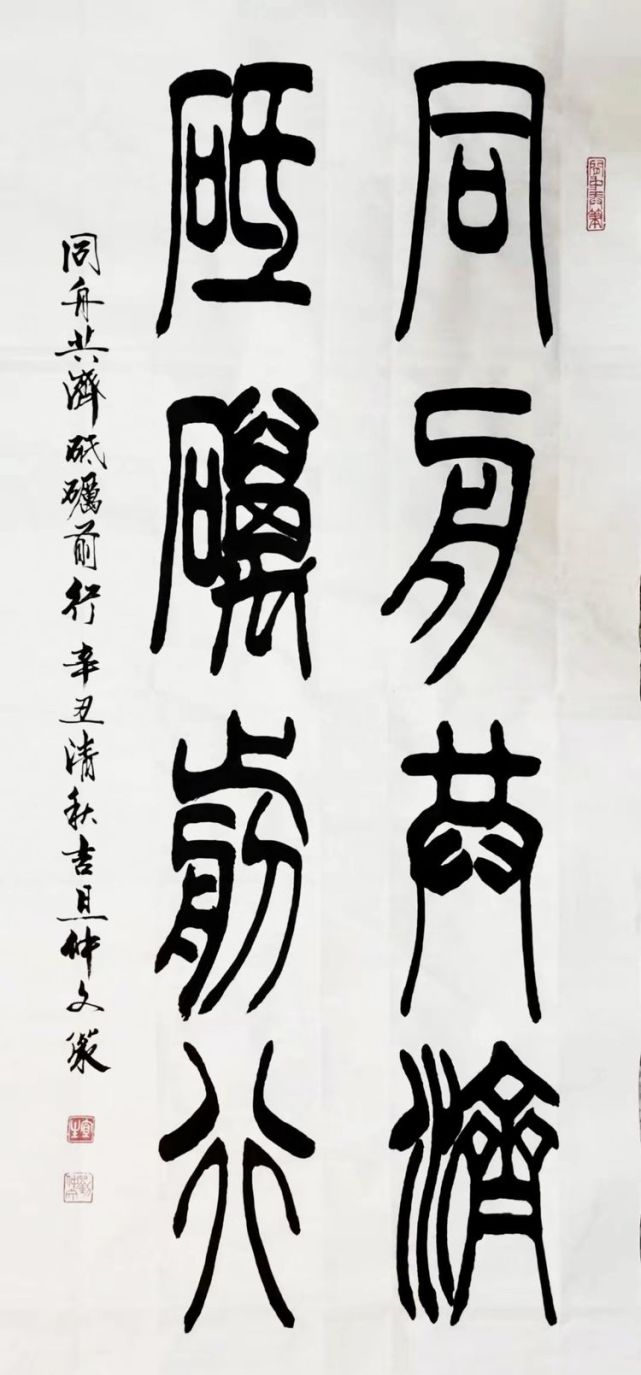 同舟共濟
砥礪前行
同舟共濟砥礪前行 辛丑清秋吉旦仲文篆